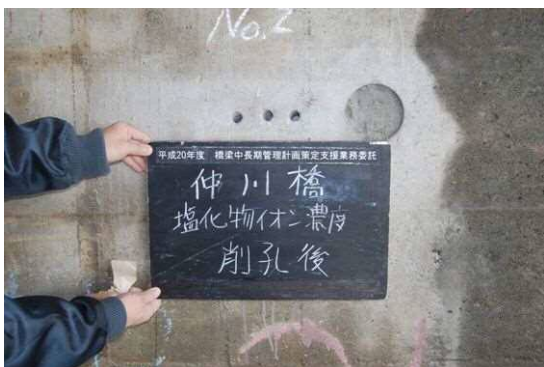 No.2
平成20年度 橋梁中長期管理計画策定支援業務委託
仲川橋
塩化物イオン濃度
削孔後